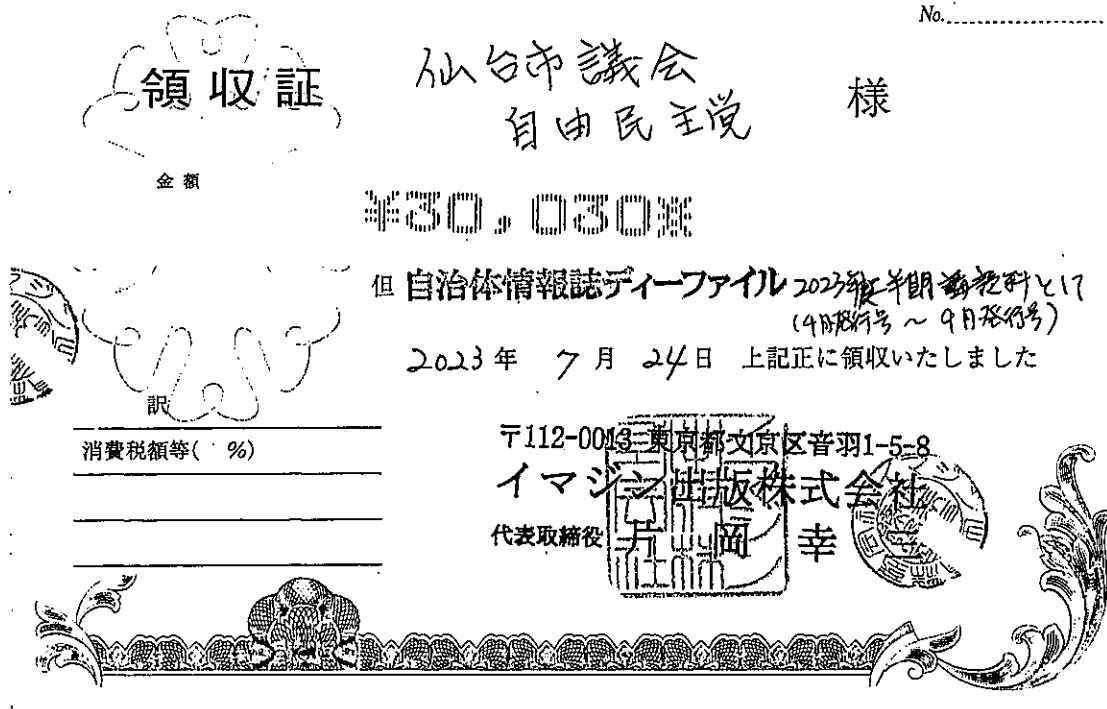 No.
領収証
仙台市議会
自由民主党 様
金額
¥30,030※
但 自治体情報誌ディーファイル 2023年度上半期 購読料として
(4月発行号 ~ 9月発行号)
2023年 7月 24日 上記正に領収いたしました
訳
消費税額等( %)
〒112-0013 東京都文京区音羽1-5-8
イマジン出版株式会社
代表取締役 片岡幸